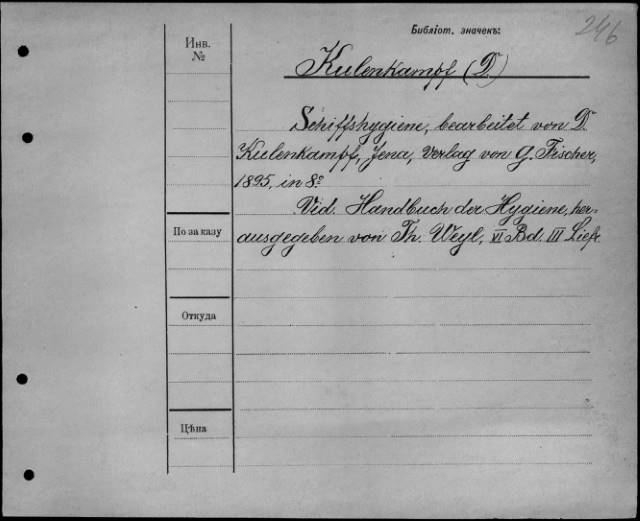 Библіот. значекъ:
246
Инв.
№
Kulenkampf (D.)
Schiffshygiene, bearbeitet von D.
Kulenkampf, Jena, Verlag von G. Fischer,
1895, in 8º
Vid. Handbuch der Hygiene, her-
ausgegeben von Th. Weyl, VI Bd. III Liefr.
По заказу
Откуда
Цѣна